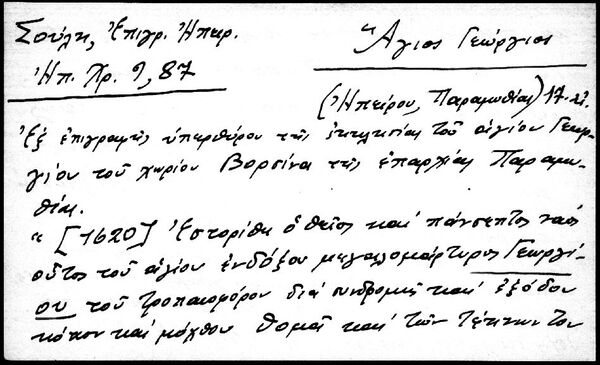 Σούλη, Ἐπιγρ. Ἠπειρ.
Ἠπ. Χρ. 9, 87
Ἅγιος Γεώργιος
(Ἠπείρου, Παραμυθίας) 17. αἰ.
Ἐξ ἐπιγραφῆς ὑπερθύρου τῆς ἐκκλησίας τοῦ ἁγίου Γεωρ-
γίου τοῦ χωρίου Βορσίνα τῆς ἐπαρχίας Παραμυ-
θίας.
" [1620] Ἐστορίθη ὁ θεῖος καί πάνσεπτος ναός
οὗτος τοῦ ἁγίου ἐνδόξου μεγαλομάρτυρος Γεωργί-
ου τοῦ τροπαιοφόρου διά συνδρομῆς καί ἐξόδου
κόπου καί μόχθου Θομᾶ καί τῶν τέκνων του